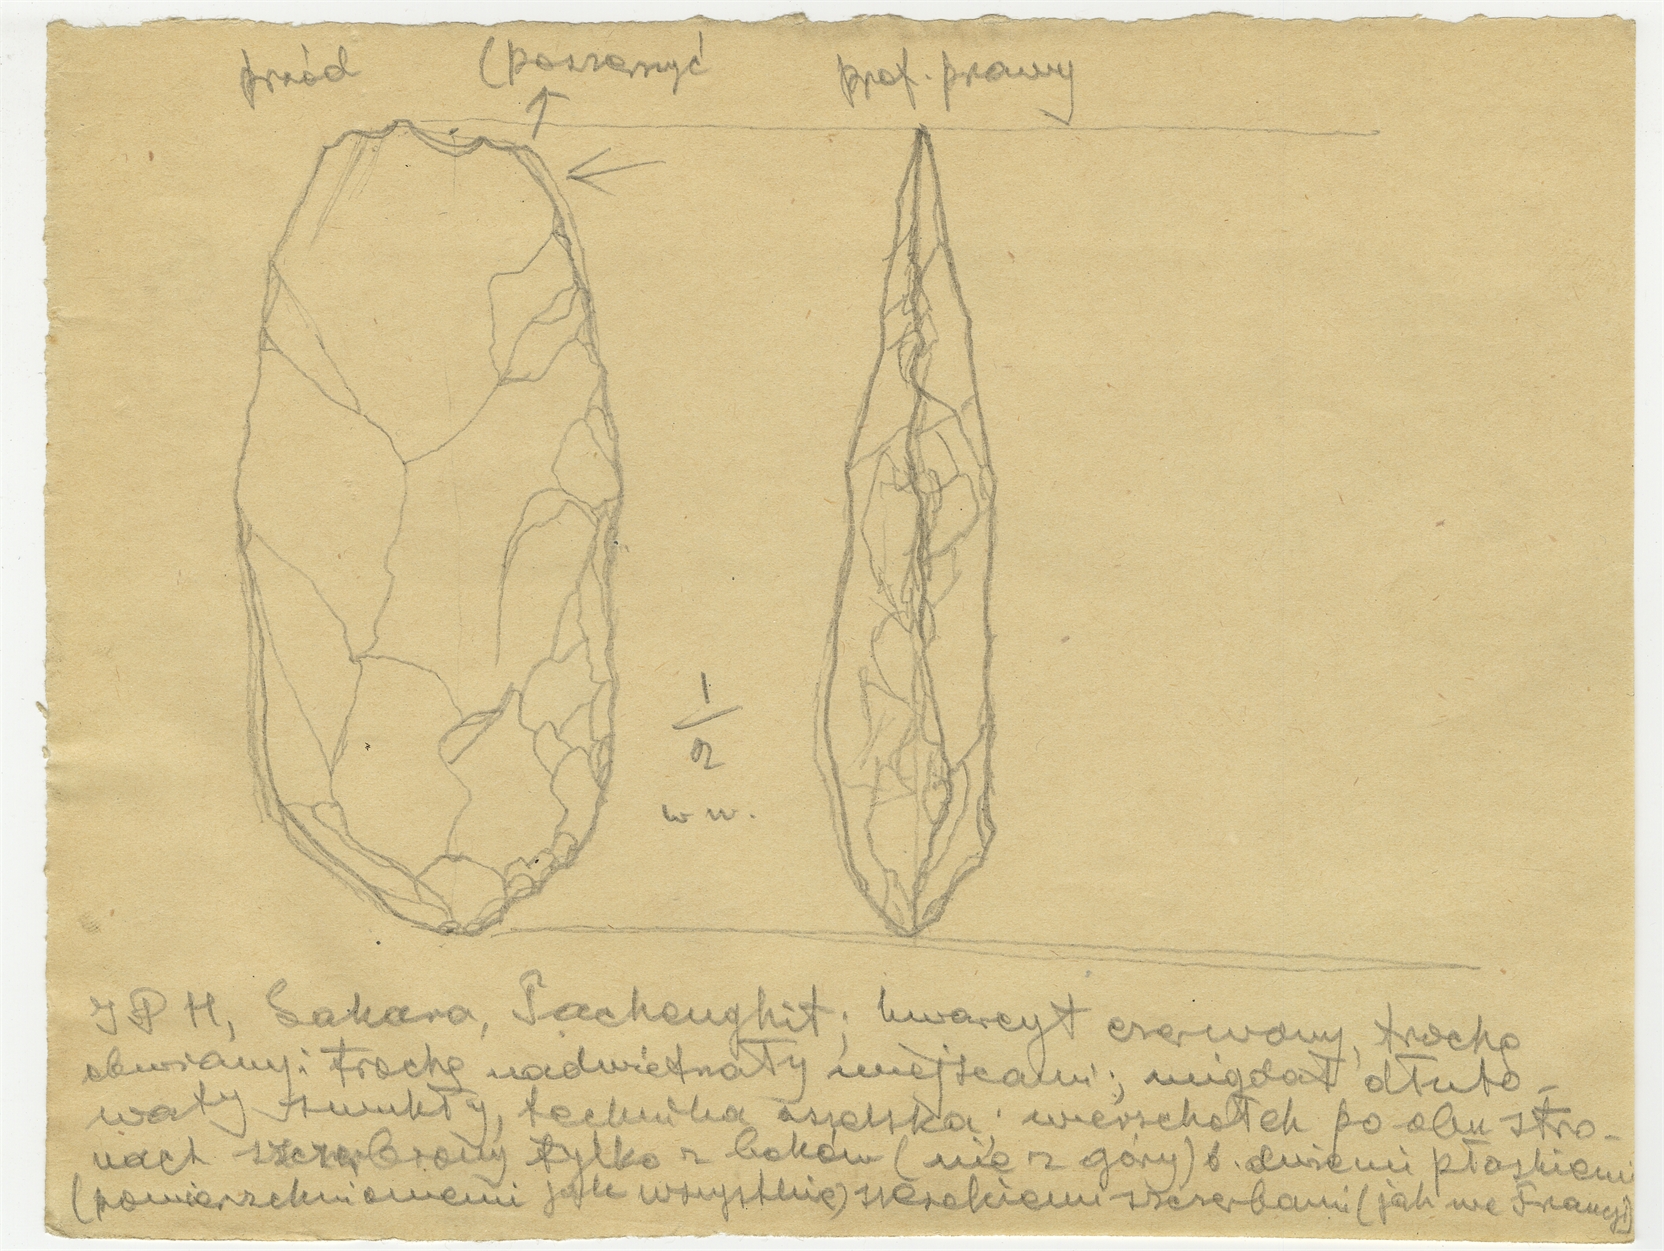 przód (poszerzyć prof. prawy
1/2
w.w.
IPH, Sahara, Tachenghit; kwarcyt czerwony, trochę
obwiany i trochę nadwietrzały miejscami; migdał dłuto-
waty smukły, technika aszelska; wierzchołek po obu stro-
nach szczerbiony tylko z boków (nie z góry) b. dużemi płaskiemi
(powierzchniowemi jak wszystkie) szerokiemi szczerbami (jak we Francji)